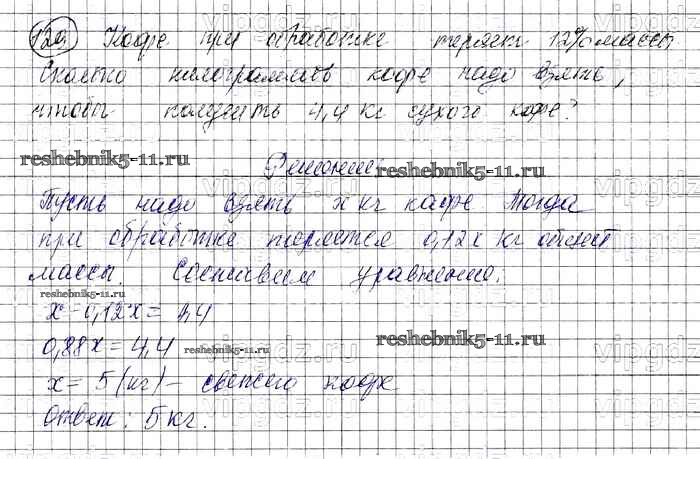 129. Кофе при обработке теряет 12% массы
Сколько килограммов кофе надо взять,
чтобы получить 4,4 кг сухого кофе?
reshebnik5-11.ru
Решение
reshebnik5-11.ru
Пусть надо взять x кг кофе Тогда
при обработке теряется 0,12x кг
массы. Составим уравнение.
reshebnik5-11.ru
x - 0,12x = 4,4
0,88x = 4,4
reshebnik5-11.ru
reshebnik5-11.ru
x = 5 (кг) - свежего кофе
Ответ: 5 кг.